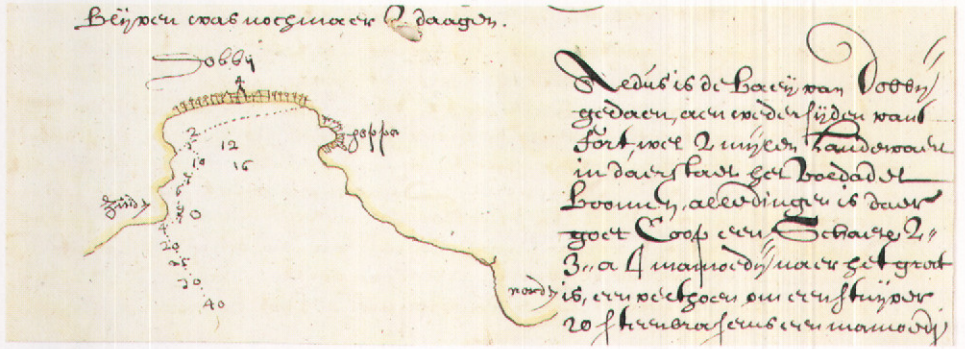 Blijven was noch maer 2 daagen.
Dobbij
2
12
10
16
goppa
zuijd
0
20
30
40
noord
Aldus is de Baeij van Dobbij
gedaen, aen weder sijden vant
Fort, wel 2 mijlen Landewaert
in daer staet het vol dadel
Boomen, alle dingen is daer
goet Coop een Schaep 2"
3" a 4 mamoedij naer het groot
is, een veethoen om een stuijver
20 steenbrasems een mamoedij